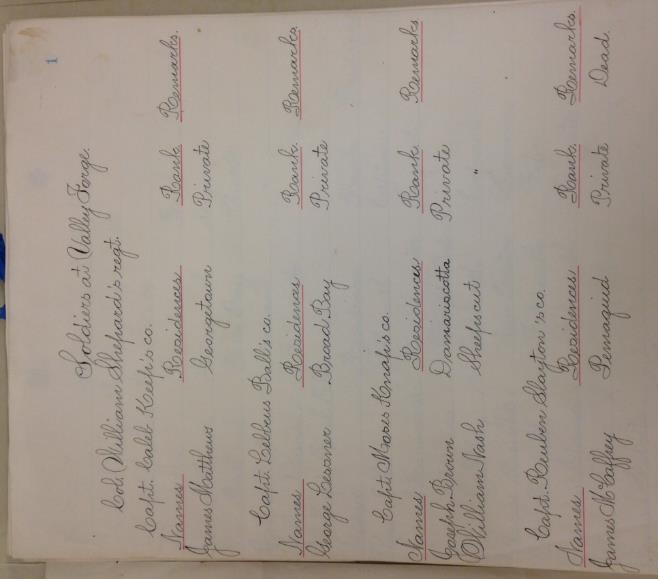 1
Soldiers at Valley Forge.
Col. William Shepard's regt.
Capt. Caleb Keep's co.
Names Residences Rank Remarks.
James Matthews Georgetown Private
Capt. Lebbeus Ball's co.
Names Residences Rank. Remarks.
George Lewner Broad Bay Private
Capt. Moses Knap's co.
Names Residences Rank Remarks
Joseph Brown Damariscotta Private
William Nash Sheepscut "
Capt. Reuben Slayton's co.
Names Residences Rank Remarks
James McCaffrey Pemaquid Private Dead.